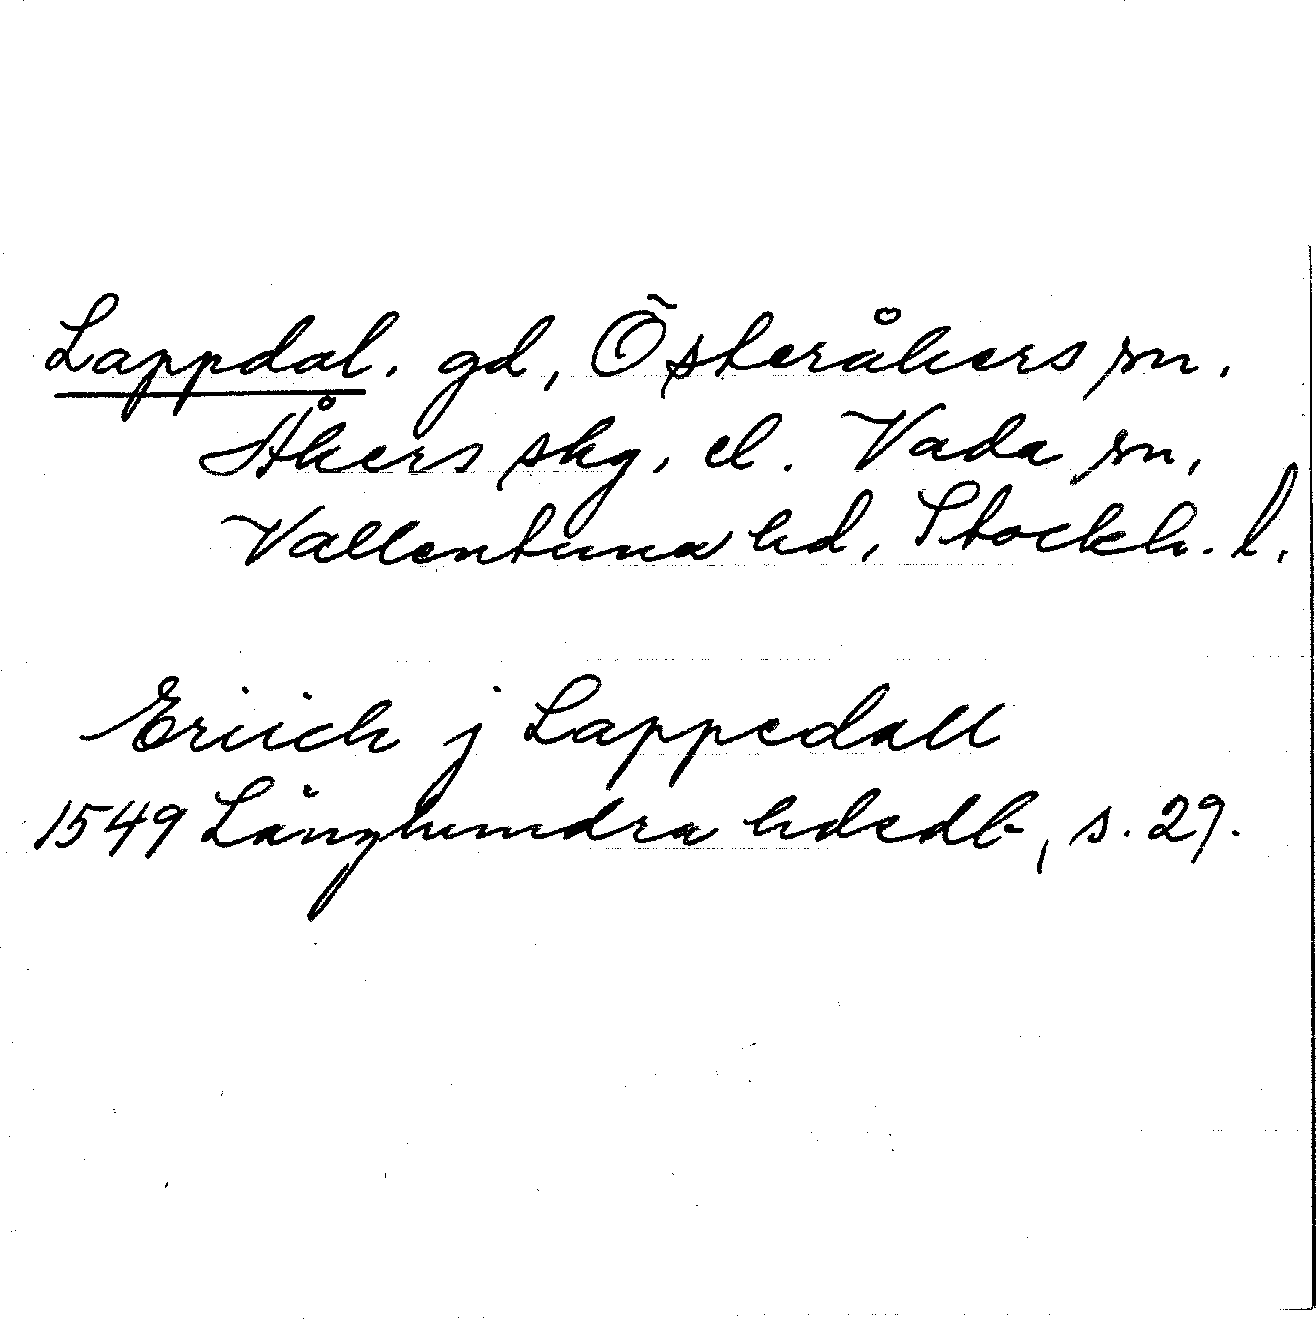 Lappdal. gd, Österåkers sn.
Åkers skg, el. Vada sn,
Vallentuna hd, Stockh. l.
Eriich j Lappedall
1549 Långhundra hdedb, s. 29.